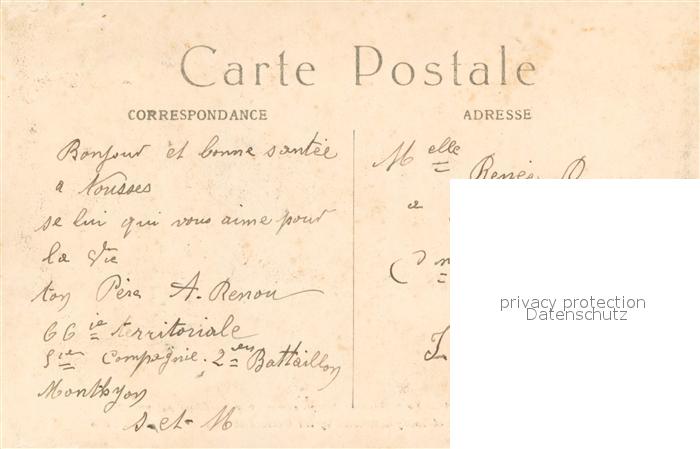 Carte Postale
CORRESPONDANCE
ADRESSE
Bonjour et bonne santée
a Nousses
se lui qui vous aime pour
la Vie
ton Père A. Renou
66 ie territoriale
5ie Compagnie. 2 em Battaillon
Monthyon
S-et-M
Melle
Renée R
a
privacy protection
Datenschutz